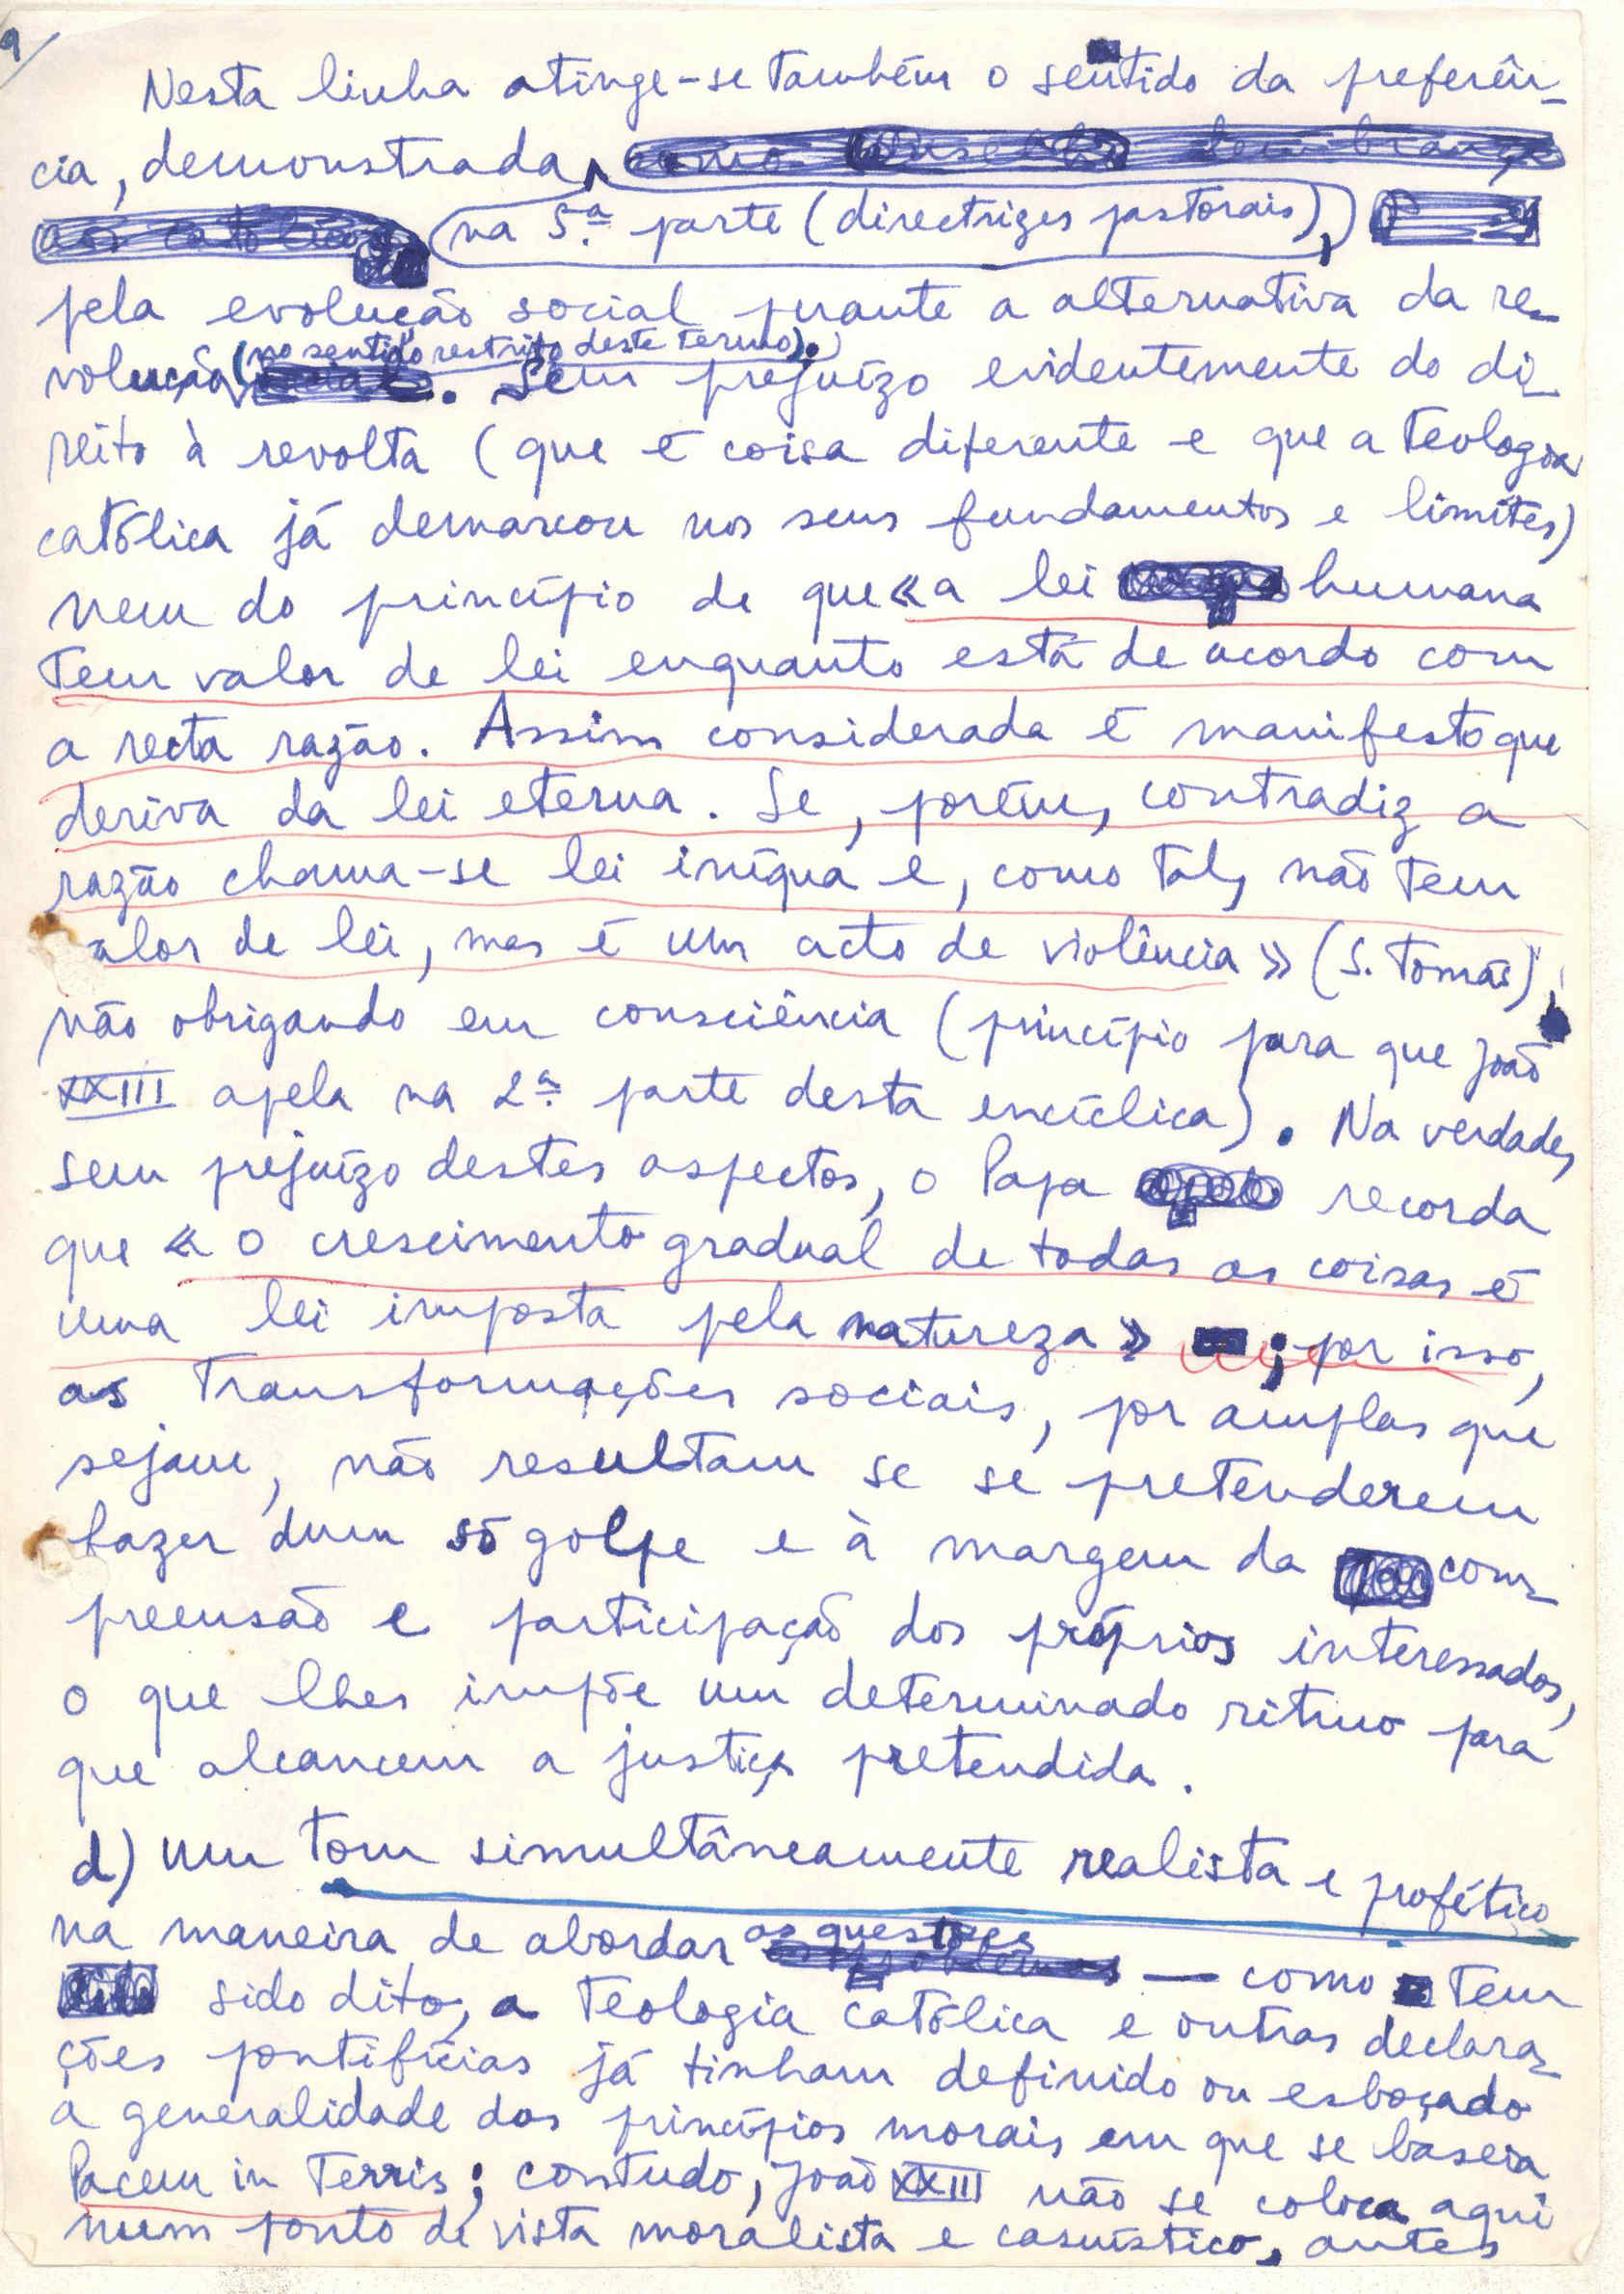 9/
Nesta linha atinge-se também o sentido da preferên-
cia, demonstrada,
na 5.ª parte (directrizes pastorais),
pela evolução social perante a alternativa da re-
volução (no sentido restrito deste termo). Sem prejuízo evidentemente do di-
reito à revolta (que é coisa diferente e que a teologia
católica já demarcou nos seus fundamentos e limites)
nem do princípio de que «a lei humana
tem valor de lei enquanto está de acordo com
a recta razão. Assim considerada é manifesto que
deriva da lei eterna. Se, porém, contradiz a
razão chama-se lei iníqua e, como tal, não tem
alor de lei, mas é um acto de violência» (S. Tomás),
não obrigando em consciência (princípio para que João
XXIII apela na 2.ª parte desta encíclica). Na verdade,
sem prejuízo destes aspectos, o Papa recorda
que «o crescimento gradual de todas as coisas é
uma lei imposta pela natureza» ; por isso,
as transformações sociais, por amplas que
sejam, não resultam se se pretenderem
fazer dum só golpe e à margem da com-
preensão e participação dos próprios interessados,
o que lhes impõe um determinado ritmo para
que alcancem a justiça pretendida.
d) Um tom simultâneamente realista e profético
na maneira de abordar as questões — como tem
sido dito, a teologia católica e outras declara-
ções pontifícias já tinham definido ou esboçado
a generalidade dos princípios morais em que se baseia
Pacem in Terris; contudo, João XXIII não se coloca aqui
num ponto de vista moralista e casuístico, antes